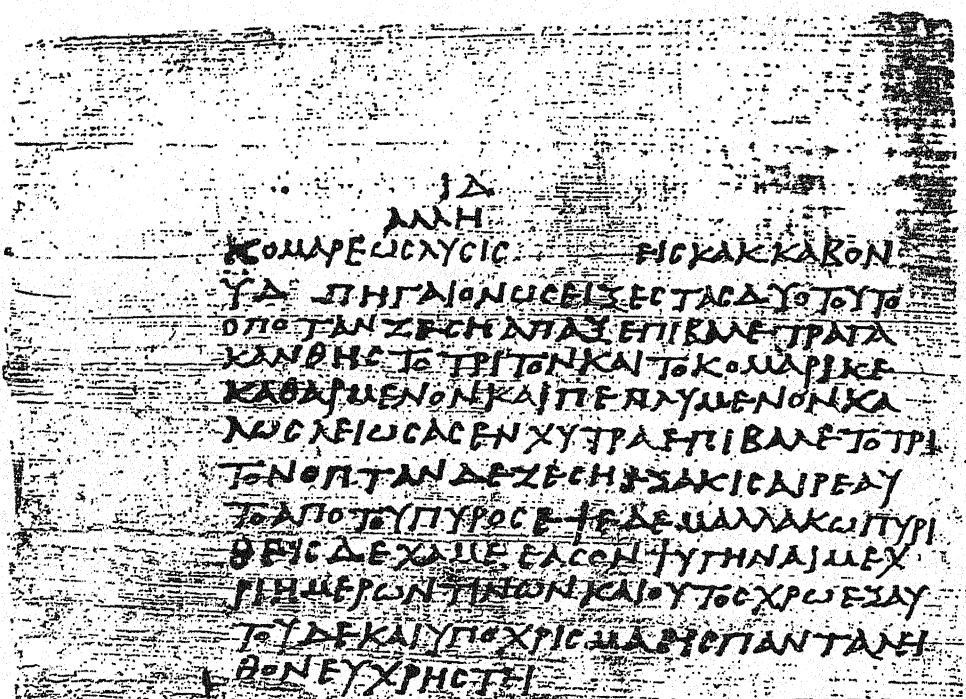 ΙΔ
ΑΛΛΗ
ΚΟΜΑΡΕΩΣ ΛΥΣΙΣ ΕΙΣ ΚΑΚΚΑΒΟΝ
ΫΔ ΠΗΓΑΙΟΝ ΩΣΕΙ ΞΕΣΤΑΣ ΔΥΟ ΤΟΥΤΟ
ΟΠΟΤΑΝ ΖΕΣΗ ΑΠΑΞ ΕΠΙΒΑΛΕ ΤΡΑΓΑ
ΚΑΝΘΗΣ ΤΟ ΤΡΙΤΟΝ ΚΑΙ ΤΟ ΚΟΜΑΡΙ ΚΕ
ΚΑΘΑΡΜΕΝΟΝ ΚΑΙ ΠΕΠΛΥΜΕΝΟΝ ΚΑ
ΛΩΣ ΛΕΙΩΣΑΣ ΕΝ ΧΥΤΡΑ ΕΠΙΒΑΛΕ ΤΟ ΤΡΙ
ΤΟΝ ΟΠΤΑΝ ΔΕ ΖΕΣΗ ΕΞΑΚΙΣ ΑΙΡΕ ΑΥ
ΤΟ ΑΠΟ ΤΟΥ ΠΥΡΟΣ ΕΨΕ ΔΕ ΜΑΛΛΑΚΩ ΠΥΡΙ
ΘΕΙΣ ΔΕ ΧΑΜΕ ΕΑΣΟΝ ΨΥΓΗΝΑΙ ΜΕΧ
ΡΙ ΗΜΕΡΩΝ ΤΙΝΩΝ ΚΑΙ ΟΥΤΟΣ ΧΡΩ ΕΞ ΑΥ
ΤΟΥ ΔΕ ΚΑΙ ΥΠΟΧΡΙΣΜΑ ΕΙΣ ΠΑΝΤΑ ΛΕΙ
ΘΟΝ ΕΥΧΡΗΣΤΕΙ